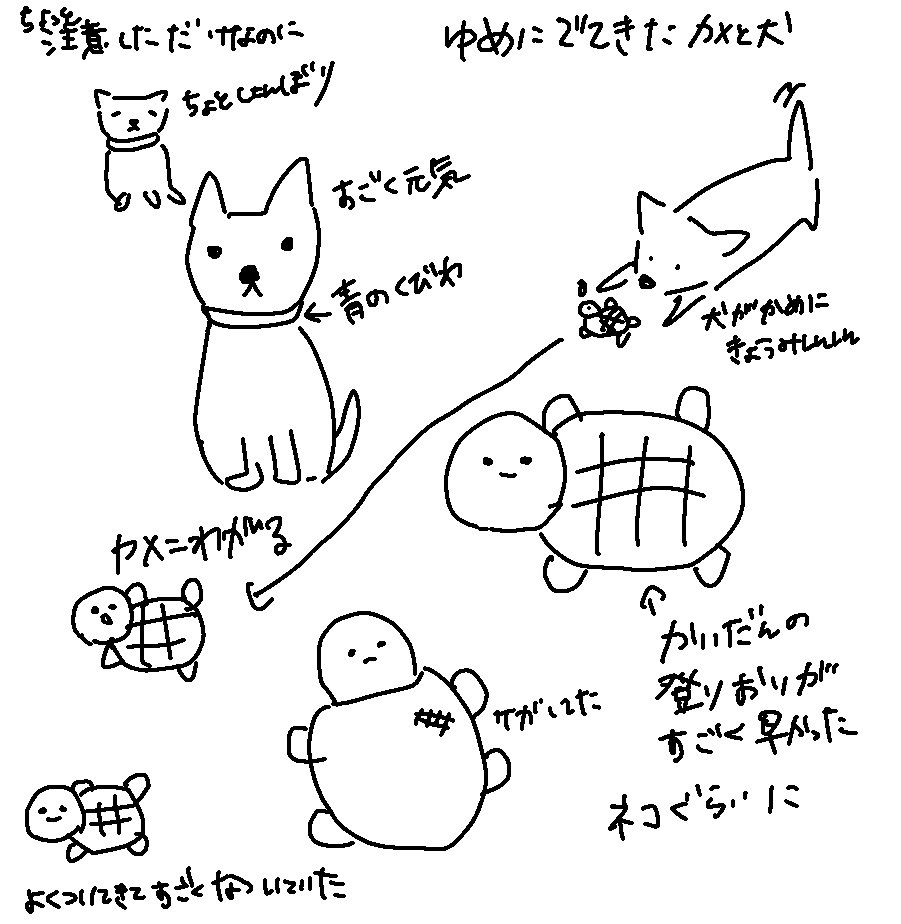 ちょっと
注意しただけなのに
ちょとしょんぼり
ゆめにでてきたカメと犬
すごく元気
←青のくびわ
犬がかめに
きょうみしんしん
カメこわがる
↑
かいだんの
登りおりが
すごく早かった
ネコぐらいに
ケガしてた
よくついてきてすごくなついていた